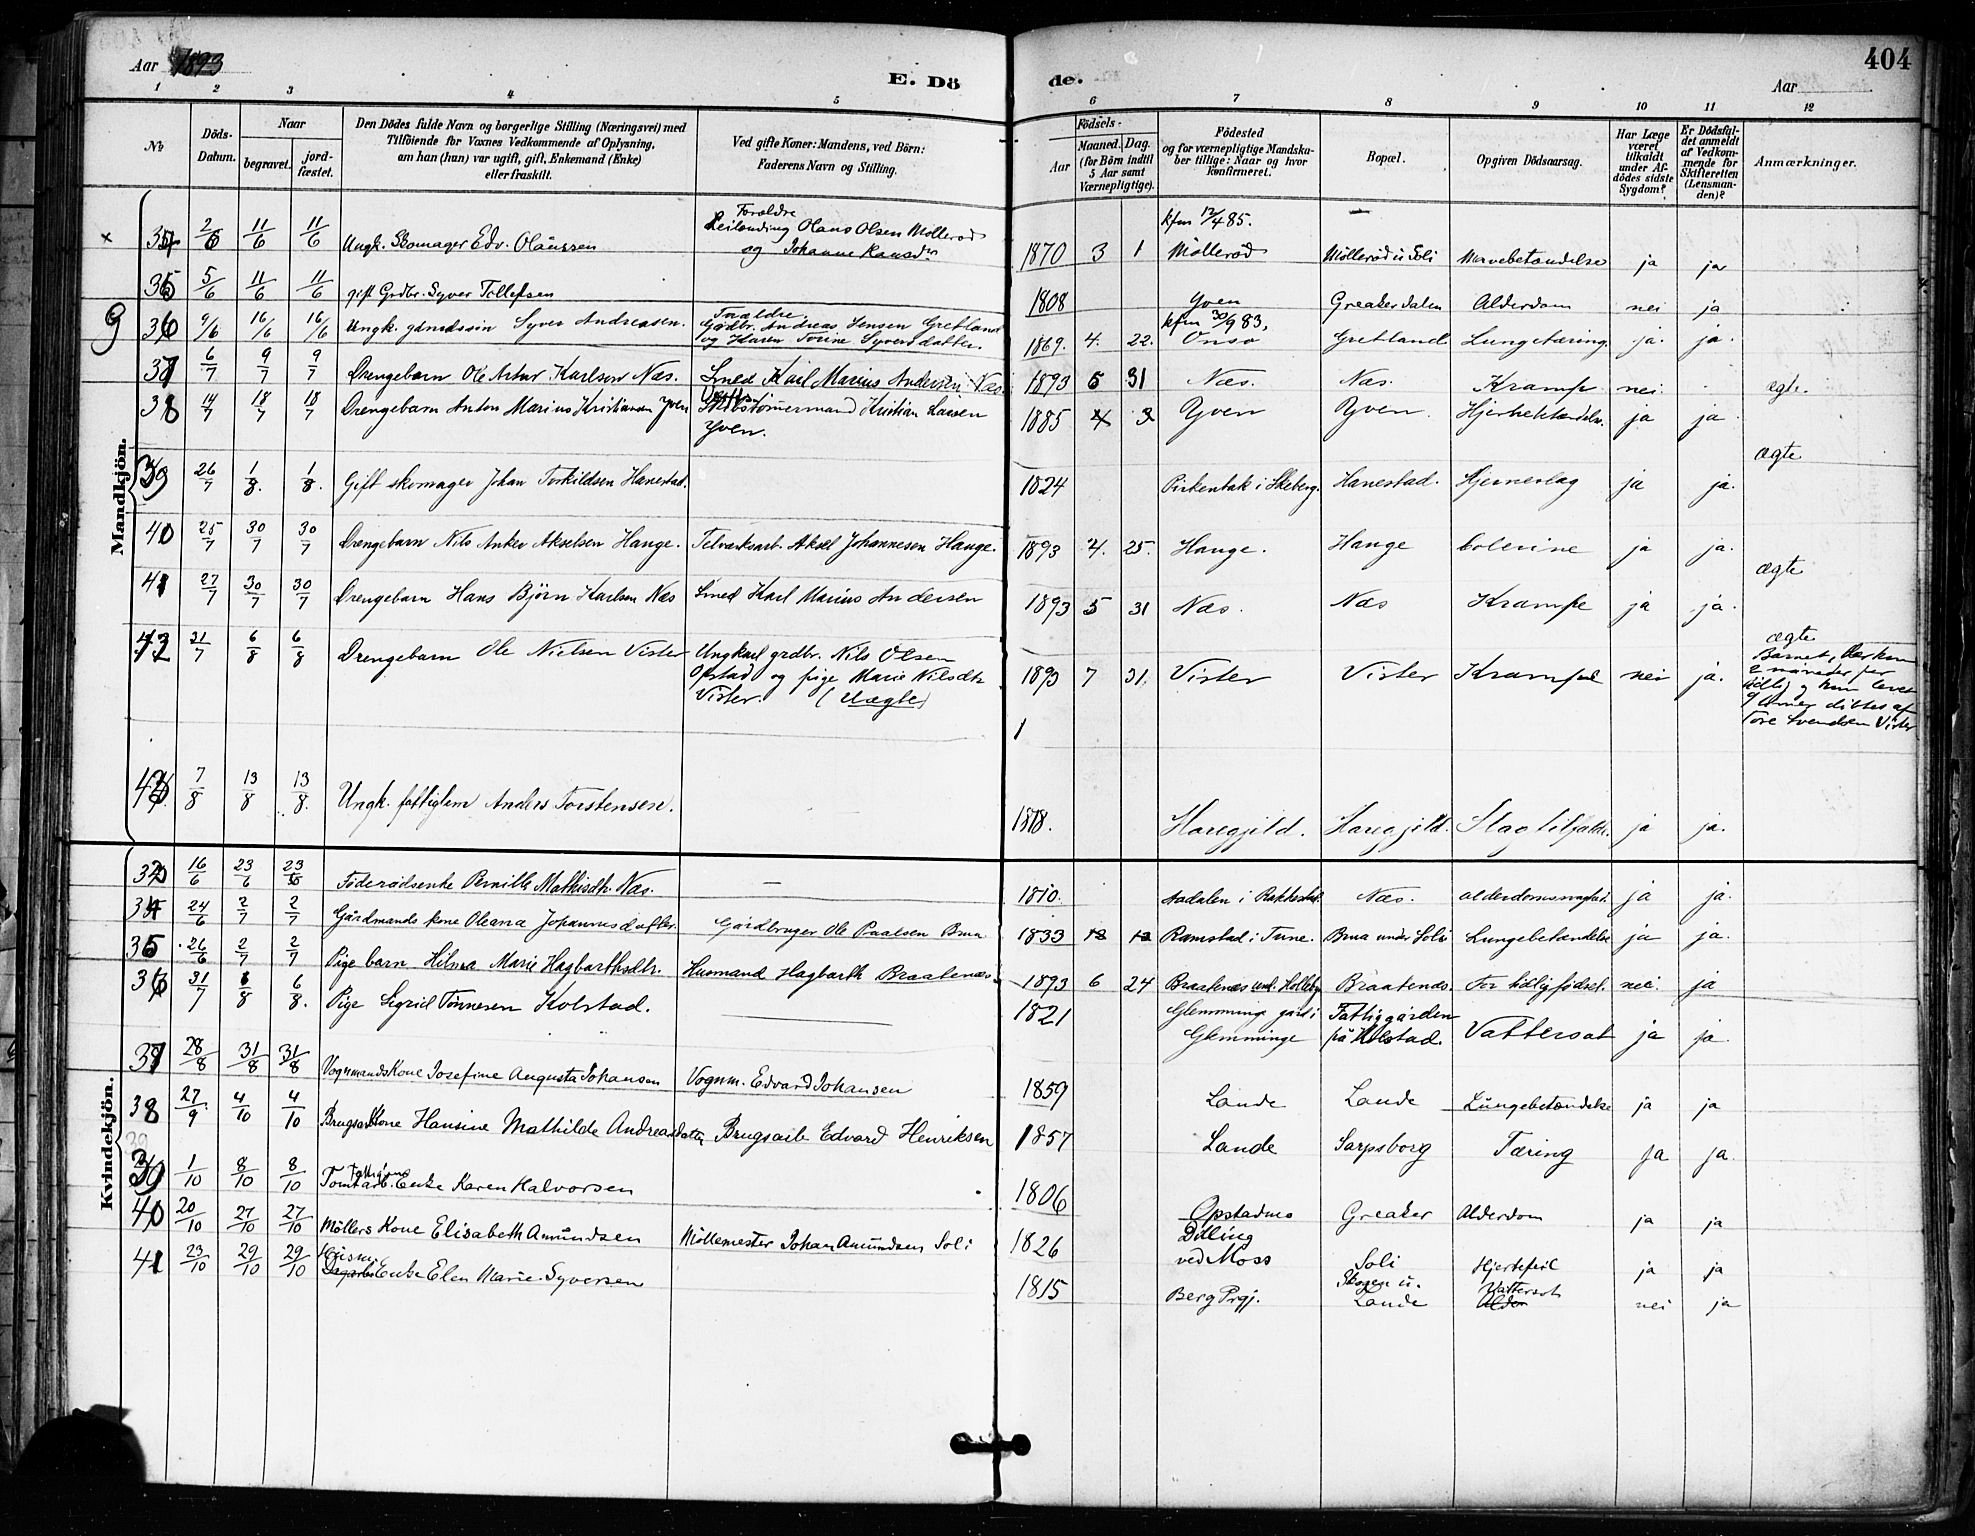 Aar 1893
E. Dö de.
404
Aar
1 2 3 4 5 6 7 8 9 10 11 12
No
Döds-Datum.
Naar
begravet.
jordfæstet.
Den Dödes fulde Navn og borgerlige Stilling (Næringsvei) med
Tilföiende for Voxnes Vedkommende af Oplysning,
om han (hun) var ugift, gift, Enkemand (Enke)
eller fraskilt.
Ved gifte Koner: Mandens, ved Börn:
Faderens Navn og Stilling.
Födsels-
Aar
Maaned. Dag.
(for Börn indtil
5 Aar samt
Værnepligtige).
Födested
og for værnepligtige Mandskaber tillige: Naar og hvor
konfirmeret.
Bopæl.
Opgiven Dödsaarsag.
Har Læge
været
tilkaldt
under Afdödes sidste
Sygdom?
Er Dödsfaldet anmeldt
af Vedkommende for
Skifteretten
(Lensmanden)?
Anmærkninger.
Mandkjön.
2/6 11/6 11/6 Ungk. Skomager Edv. Olaussen Forældre Leilænding Olaus Olsen Möllerød og Johanne 1870 3 1 kfm 12/4 85. Möllerød Möllerød u Soli ja ja
35 5/6 11/6 11/6 gift Grdbr. Syver Tollefsen 1808 Yven Greaker dalen Alderdom nei ja
36 9/6 16/6 16/6 Ungk. gaardssön Syver Andreasen. Forældre Gdbr. Andreas Jensen Gretland og Karen Torine Syversdatter. 1869. 4. 22. kfm 30/9 83, Onsø Gretland Lungetæring. ja. ja.
37 6/7 9/7 9/7 Drengebarn Ole Artur Karlsen Næs. Smed Karl Marius Andersen Næs 1893 5 31 Næs. Næs. Krampe nei. ægte.
38 14/7 18/7 18/7 Drengebarn Anton Marius Kristiansen Yven Skibstømmermand Kristian Lassen Yven. 1885 4 3 Yven Yven. ja ja ægte
39 26/7 1/8. 1/8. Gift skomager Johan Torkildsen Hanestad. 1824 i Skeberg. Hanestad. Hjerneslag ja ja.
40 25/7 30/7 30/7 Drengebarn Nils Anker Akselsen Hauge. Aksel Johannesen Hauge. 1893 4. 25. Hauge. Hauge Colerine ja ja. ægte
41 27/7 30/7 30/7 Drengebarn Hans Björn Karlsen Næs Smed Karl Marius Andersen 1893 5 31 Næs. Næs Krampe ja ja. ægte
42 31/7 6/8 6/8 Drengebarn Ole Nielsen Vister Ungkarl grdbr. Nils Olsen
Opstad og pige Marie Nilsdtr
Vister. (Uægte) 1893 7 31. Vister Vister Krampe nei ja. Barnet
Tore Svendsen Vister
7/8 13/8 13/8. Ungk. fattiglem Anders Torstensen. Haregjild. Haregjild. Slagtilfælde. ja ja.
Kvindekjön.
16/6 23/6 Föderådsenke Pernille Mathisdtr. Næs. — 1810. i Rakkestad. Næs. ja ja.
34 24/6 2/7 2/7 Gårdmands kone Oleana Johannesdatter. Gårdbruger Ole Paulsen Brua 1833 12 12 Ramstad i Tune. Brua under Soli Lungebetændelse ja ja.
35 26/6 2/7 2/7 Pige barn Hilma Marie Hagbarthsdtr. Husmand Hagbarth Braatenæs 1893 6 24 Braatenæs und. Holleby Braatenæs For tidlig födsel. nei. ja
36 31/7 6/8 6/8. Pige Sigrid Tönnesen Kolstad. 1821 Glemminge gård i
Glemminge Fattiggården
på Kolstad. Vattersot ja ja.
37 28/8 31/8 31/8 Vognmandskone Josefine Augusta Johansen Vognm. Edvard Johansen 1859 Lande Lande Lungebetændelse ja ja
38 27/9. 4/10 4/10 Brugsarb Kone Hansine Mathilde Andreasdatter Brugsarb Edvard Henriksen 1857 Lande Sarpsborg Tæring ja ja.
39 1/10 8/10 8/10 Tomtarb. Enke Karen Halvorsen 1806 Greaker Alderdom ja ja
40 20/10 27/10 27/10 Möllers Kone Elisabeth Amundsen Möllemester Johan Amundsen Soli 1826 Dilling
ved Moss Soli Hjertefeil ja ja
41 23/10 29/10 29/10 Husm. Enke Elen Marie Syversen 1815 Berg Prgj. Skogen u.
Lande Vattersot nei ja